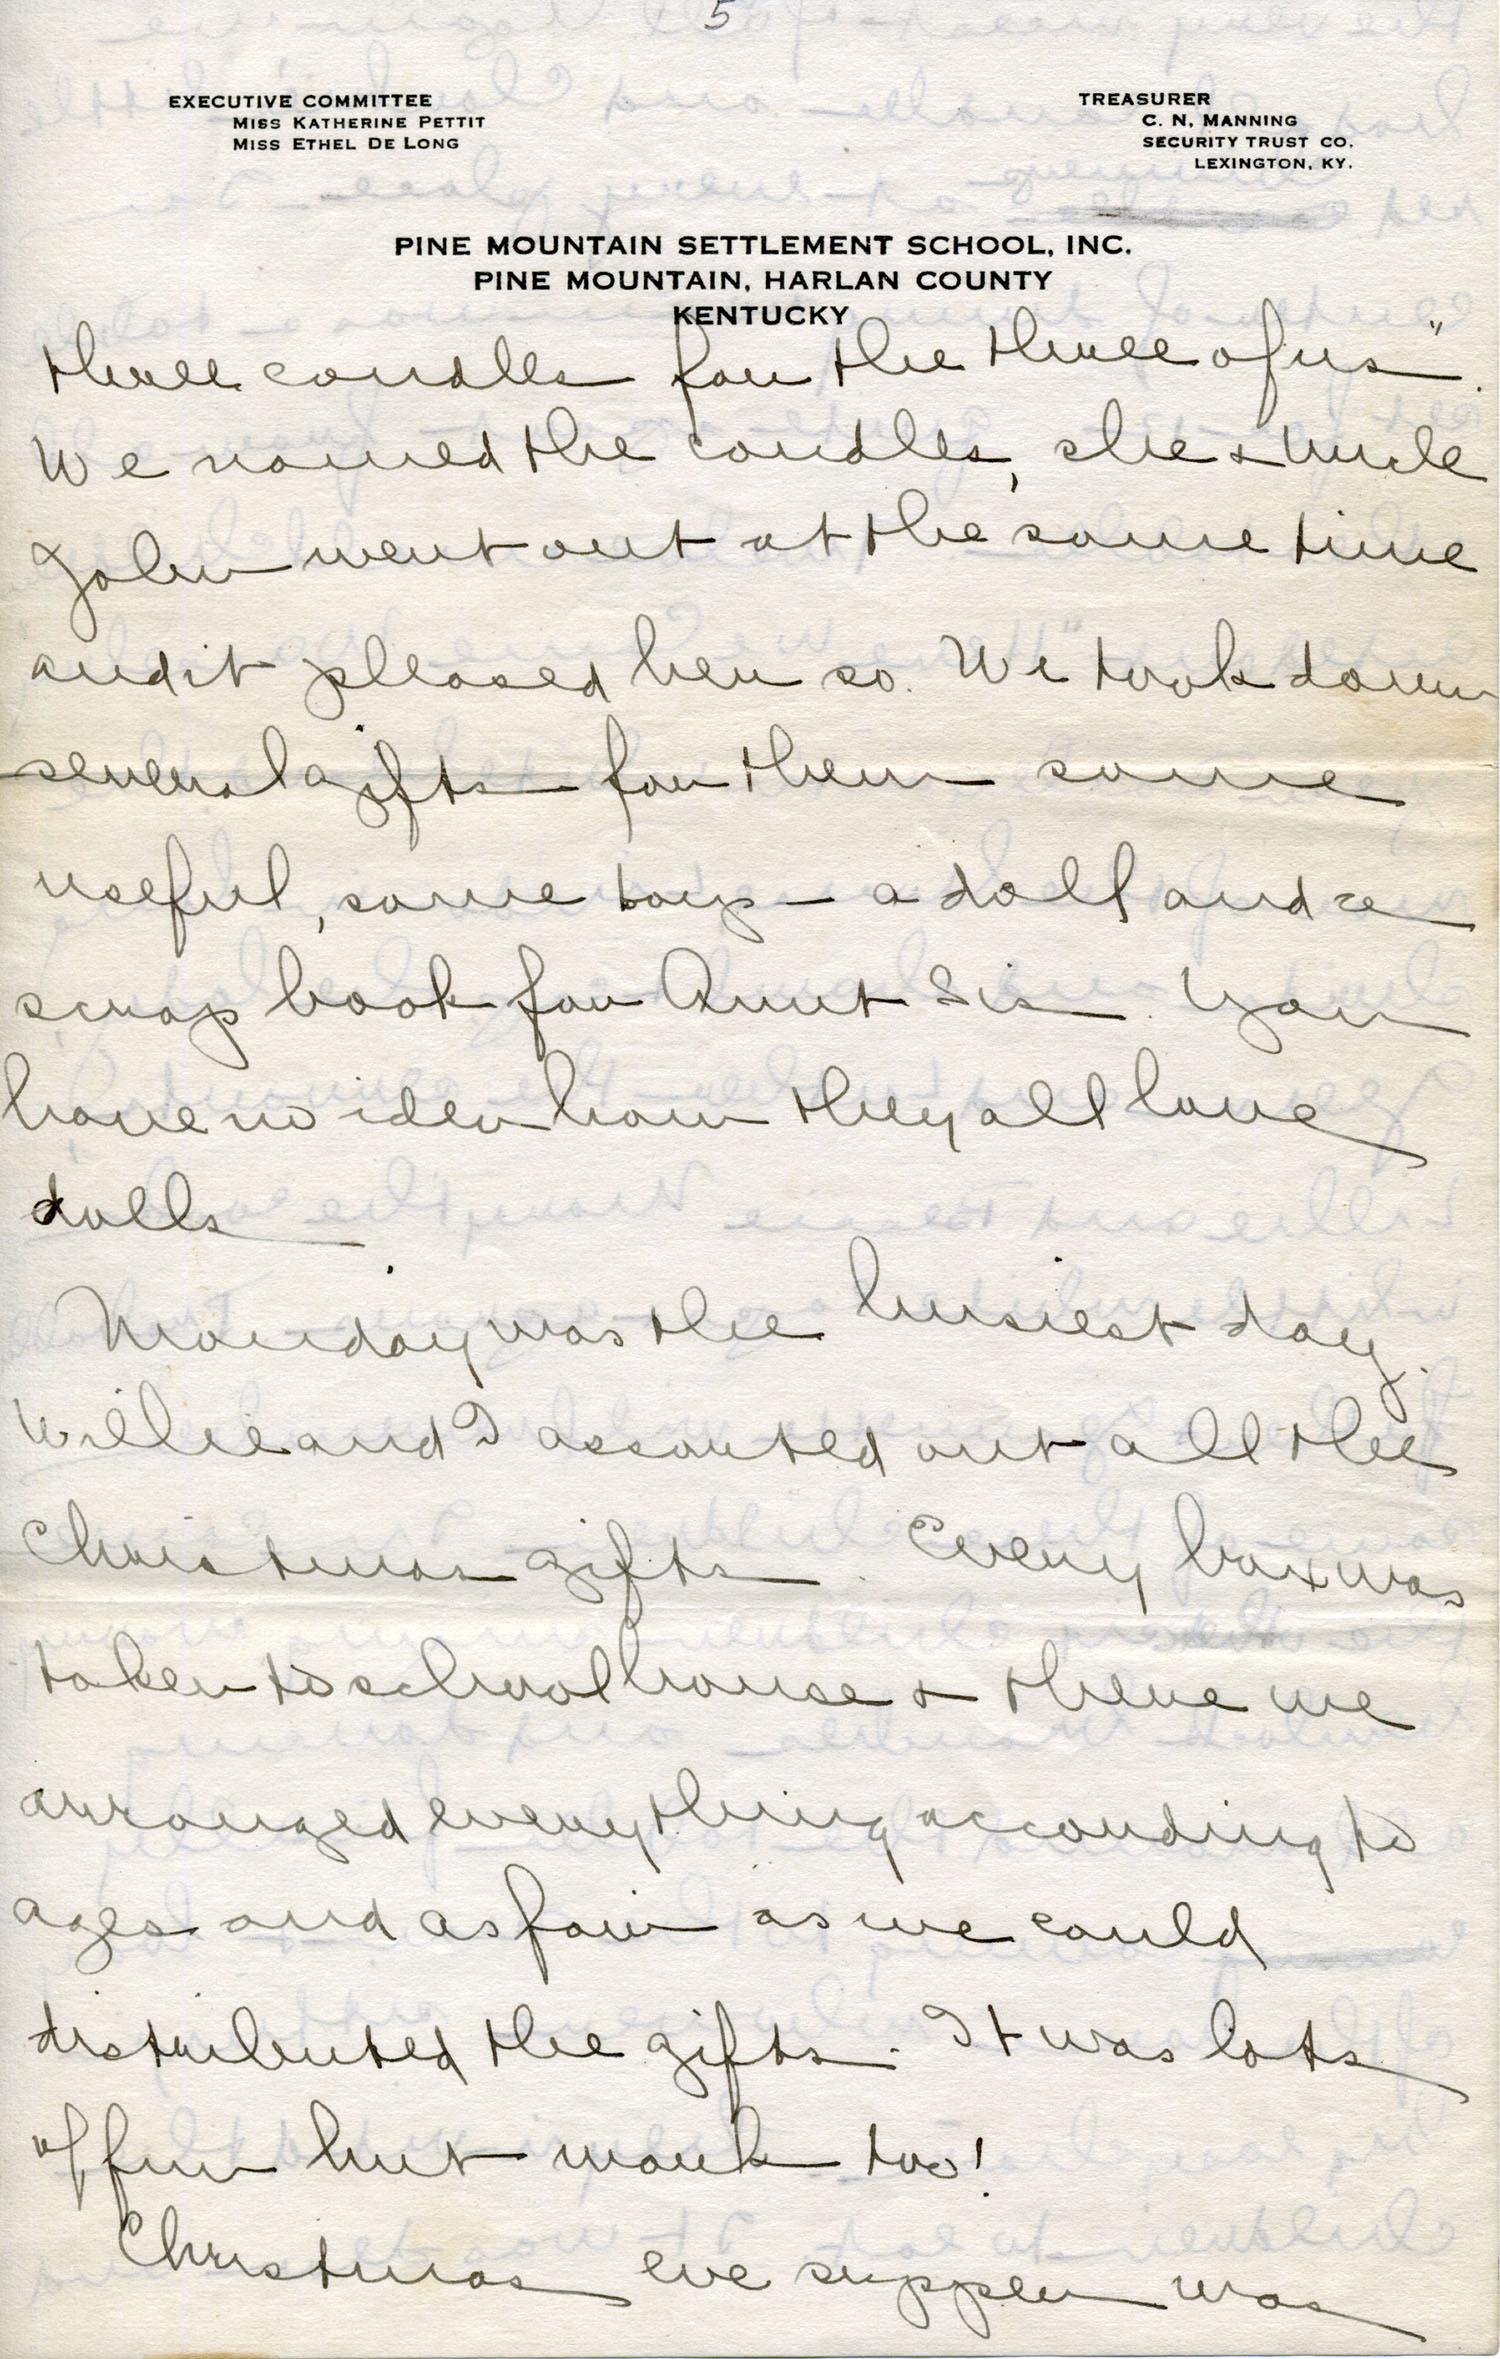 5
EXECUTIVE COMMITTEE
MISS KATHERINE PETTIT
MISS ETHEL DE LONG
TREASURER
C. N. MANNING
SECURITY TRUST CO.
LEXINGTON, KY.
PINE MOUNTAIN SETTLEMENT SCHOOL, INC.
PINE MOUNTAIN, HARLAN COUNTY
KENTUCKY
three candles for the three of us".
We named the candles, she & Uncle
John went out at the same time
and it pleased her so. We took down
several gifts for them some
useful, some toys – a doll and a
scrap book for Aunt Sis. You
have no idea how they all love
dolls.
Monday was the busiest day.
Willie and I assorted out all the
Christmas gifts. Every box was
taken to school house & there we
arranged everything according to
ages and as fair as we could
distributed the gifts. It was lots
of fun but work too!
Christmas eve supper was